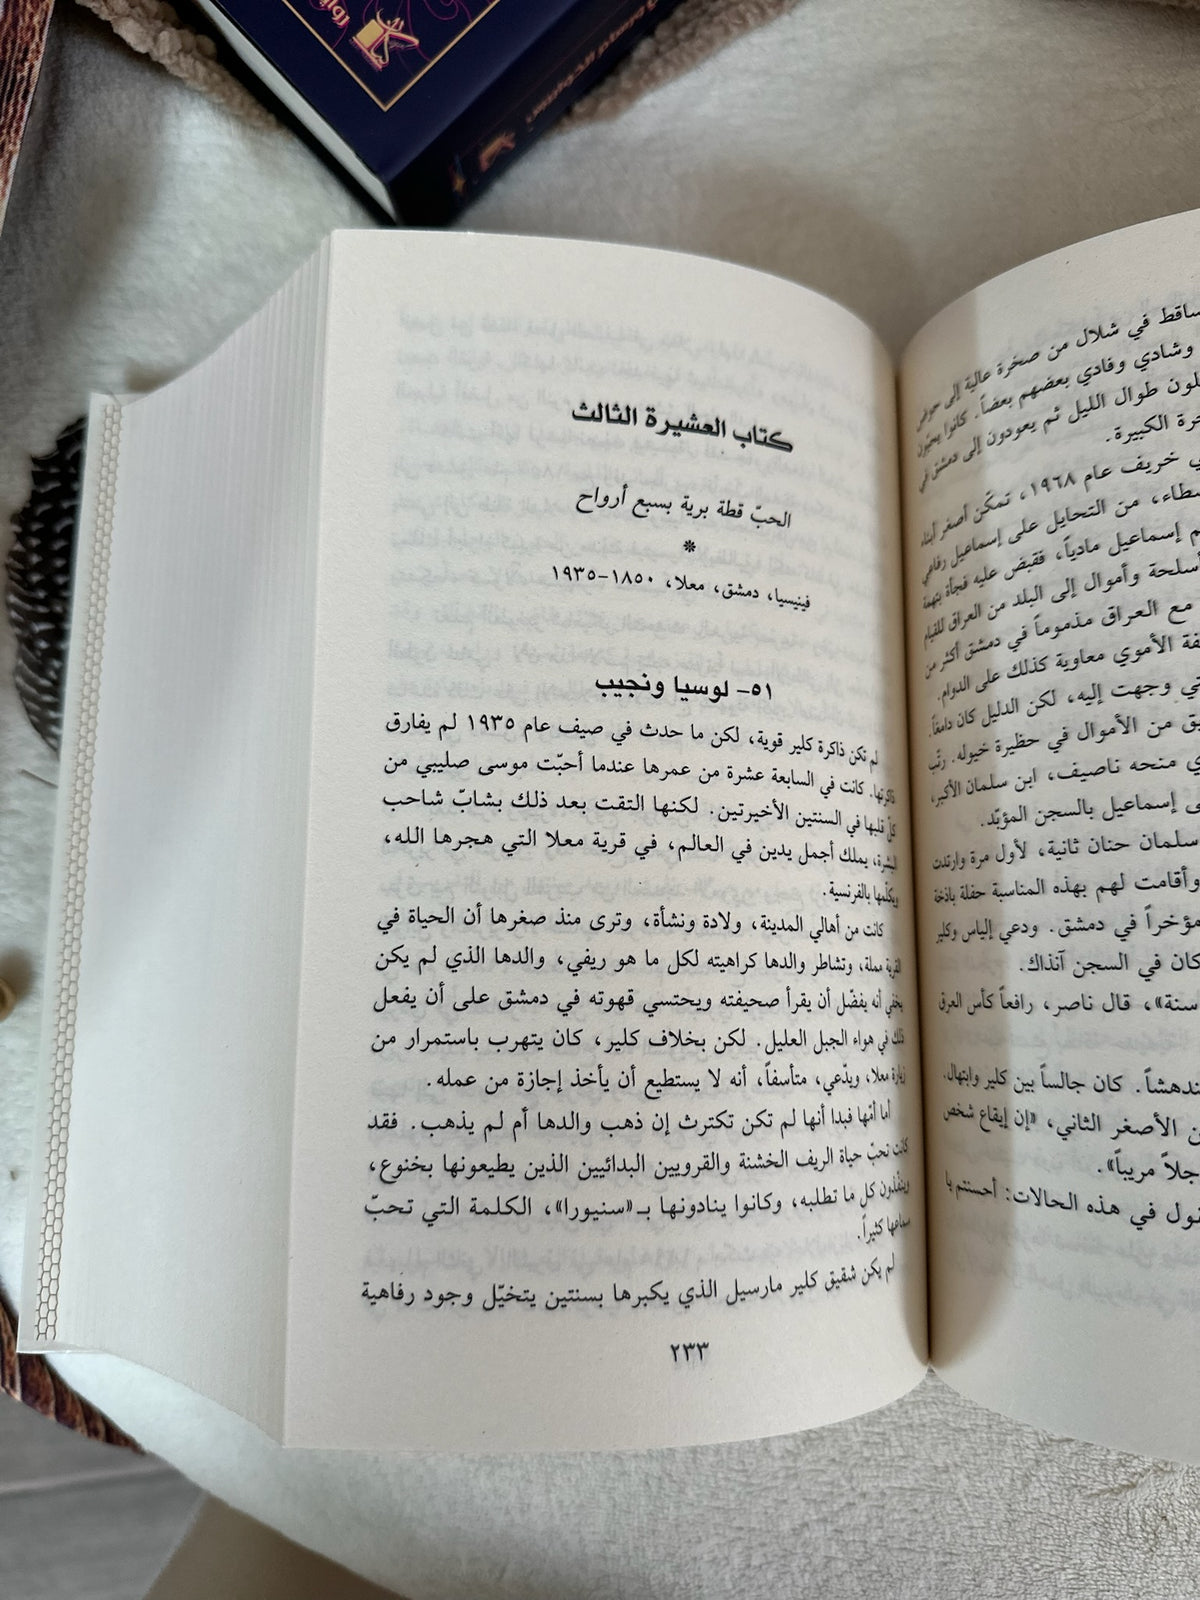 ساقط في شلال من صخرة عالية إلى حوض
وشادي وفادي بعضهم بعضاً. كانوا يحيّون
طوال الليل ثم يعودون إلى دمشق في
الكبيرة.
خريف عام ١٩٦٨، تمكّن أصغر أبناء
من التحايل على إسماعيل رفاعي
إسماعيل مادياً، فقبض عليه فجأة بتهمة
أسلحة وأموال إلى البلد من العراق للقيام
مع العراق مذموماً في دمشق أكثر من
الأموي معاوية كذلك على الدوام.
وجهت إليه، لكن الدليل كان دامغاً.
من الأموال في حظيرة خيوله. رتّب
منحه ناصيف، ابن سلمان الأكبر،
إسماعيل بالسجن المؤبّد.
سلمان حنان ثانية، لأول مرة وارتدت
وأقامت لهم بهذه المناسبة حفلة باذخة
مؤخراً في دمشق. ودعي إلياس وكلير
كان في السجن آنذاك.
سنة»، قال ناصر، رافعاً كأس العرق
كان جالساً بين كلير وابتهال.
الأصغر الثاني، «إن إيقاع شخص
مريباً».
في هذه الحالات: أحسنتم يا
كتاب العشيرة الثالث
الحبّ قطة برية بسبع أرواح
*
فينيسيا، دمشق، معلا، ١٨٥٠-١٩٣٥
٥١- لوسيا ونجيب
لم تكن ذاكرة كلير قوية، لكن ما حدث في صيف عام ١٩٣٥ لم يفارق
ذاكرتها. كانت في السابعة عشرة من عمرها عندما أحبّت موسى صليبي من
كلّ قلبها في السنتين الأخيرتين. لكنها التقت بعد ذلك بشابّ شاحب
البشرة، يملك أجمل يدين في العالم، في قرية معلا التي هجرها الله،
ويكلّمها بالفرنسية.
كانت من أهالي المدينة، ولادة ونشأة، وترى منذ صغرها أن الحياة في
القرية مملة، وتشاطر والدها كراهيته لكل ما هو ريفي، والدها الذي لم يكن
يخفي أنه يفضّل أن يقرأ صحيفته ويحتسي قهوته في دمشق على أن يفعل
ذلك في هواء الجبل العليل. لكن بخلاف كلير، كان يتهرب باستمرار من
زيارة معلا، ويدّعي، متأسفاً، أنه لا يستطيع أن يأخذ إجازة من عمله.
أما أمّها فبدا أنها لم تكن تكترث إن ذهب والدها أم لم يذهب. فقد
كانت تحبّ حياة الريف الخشنة والقرويين البدائيين الذين يطيعونها بخنوع،
وينفّذون كل ما تطلبه، وكانوا ينادونها بـ«سنيورا»، الكلمة التي تحبّ
سماعها كثيراً.
لم يكن شقيق كلير مارسيل الذي يكبرها بسنتين يتخيّل وجود رفاهية
٢٣٣